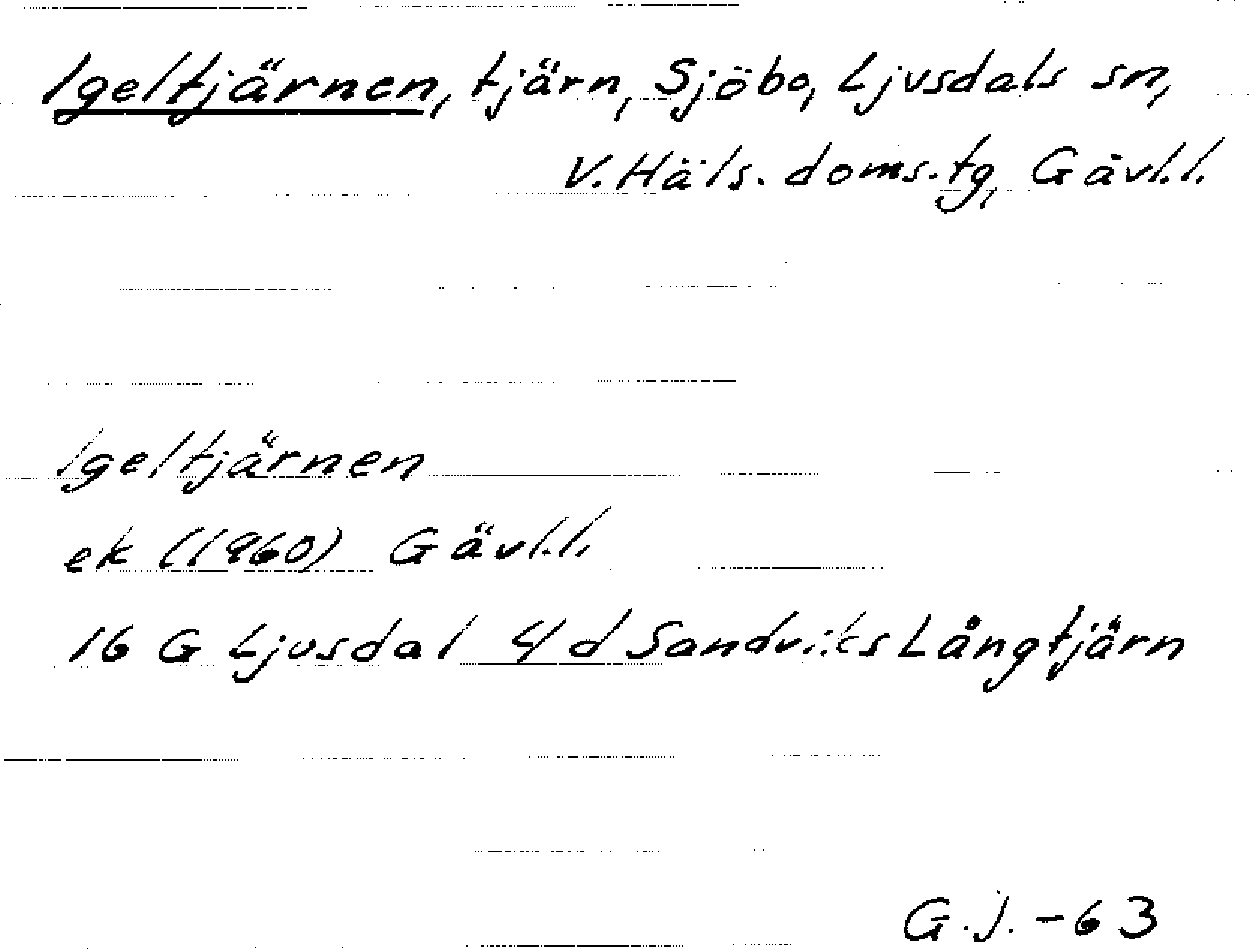 Igeltjärnen, tjärn, Sjöbo, Ljusdals sn,
V. Häls. doms.tg, Gävl.l.
Igeltjärnen
ek (1960) Gävl.l.
16 G Ljusdal 4 d Sandviks Långtjärn
G.J. -63